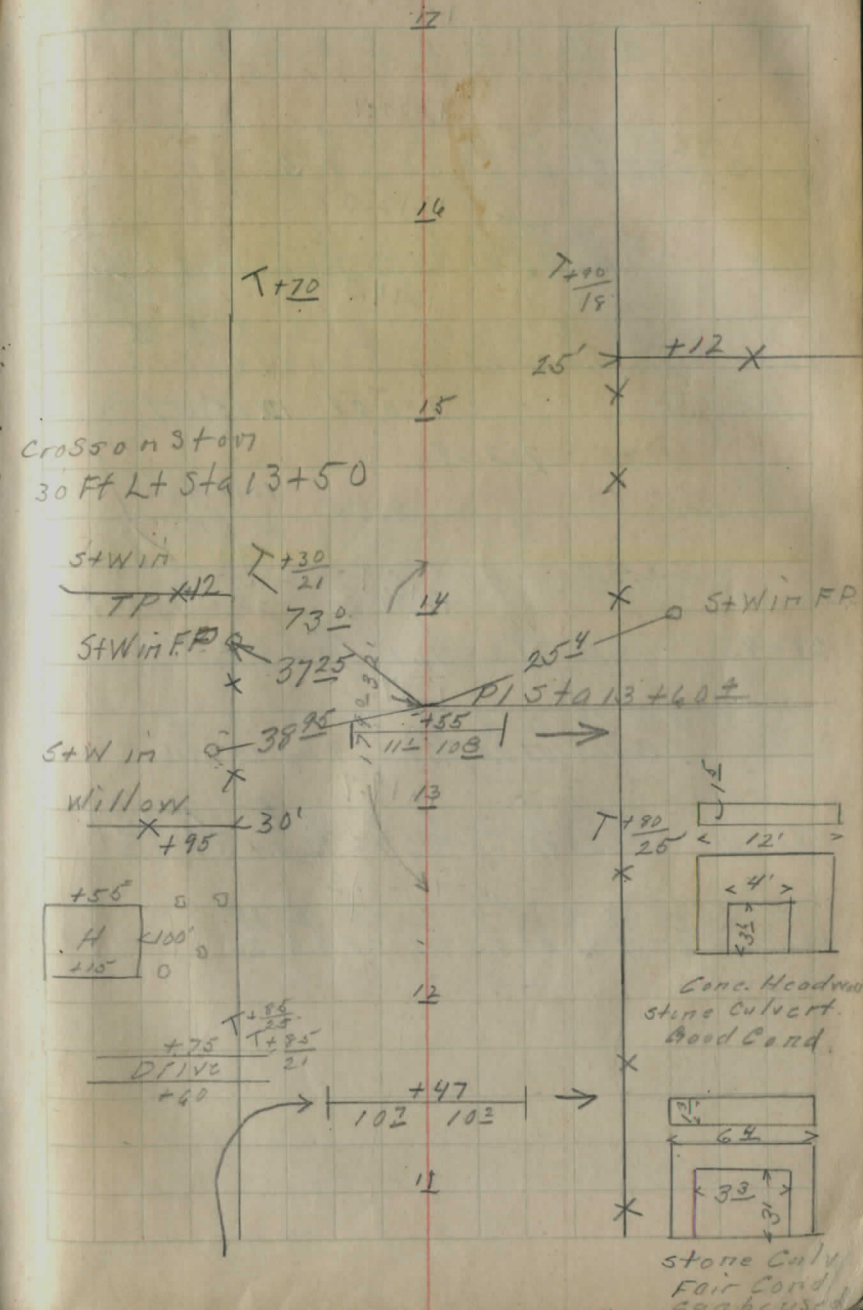 17
16
T+70
T+90
18
25'
+12
15
Cross on Ston
30 Ft Lt Sta 13+50
StWin
+12
TP
T+30
21
14
73 0
StWin FP
StWin F.P
37 25
25 4
PI Sta 13+60 4
38 95
+55
11 1 10 8
StWin
13
Willow
30'
+95
T+80
25
1 5
12'
4'
3 1
+55
H
100'
+15
12
Conc. Headwall
Stone Culvert.
Good Cond.
T+85
25
T+85
21
+75
Drive
+60
+47
10 7 10 3
6 4
3 3
3'
11
Stone Culv
Fair Cond